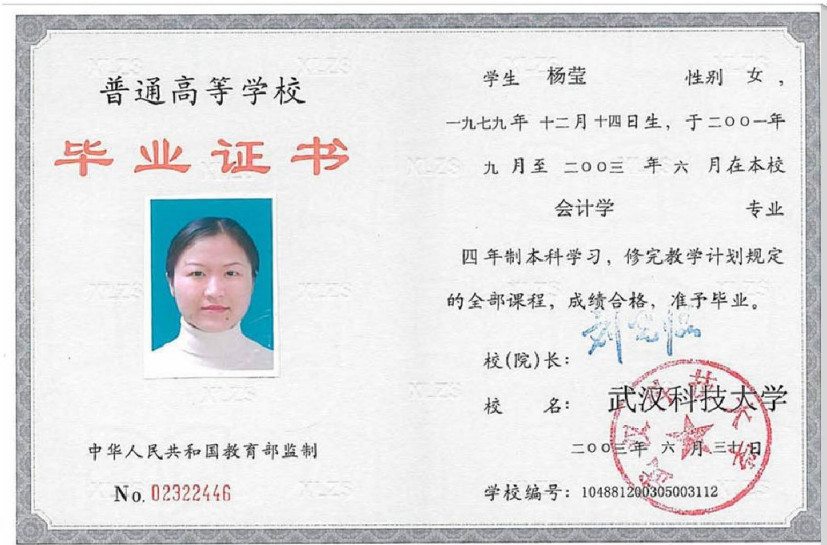 普通高等学校
毕业证书
中华人民共和国教育部监制
No. 02322446
学生 杨莹 性别 女，
一九七九年 十二月十四日生，于二〇〇一年
九 月至 二〇〇三 年 六 月在本校
会计学 专业
四年制本科学习，修完教学计划规定
的全部课程，成绩合格，准予毕业。
校(院)长：
校 名： 武汉科技大学
二〇〇三年 六 月三十日
学校编号：104881200305003112